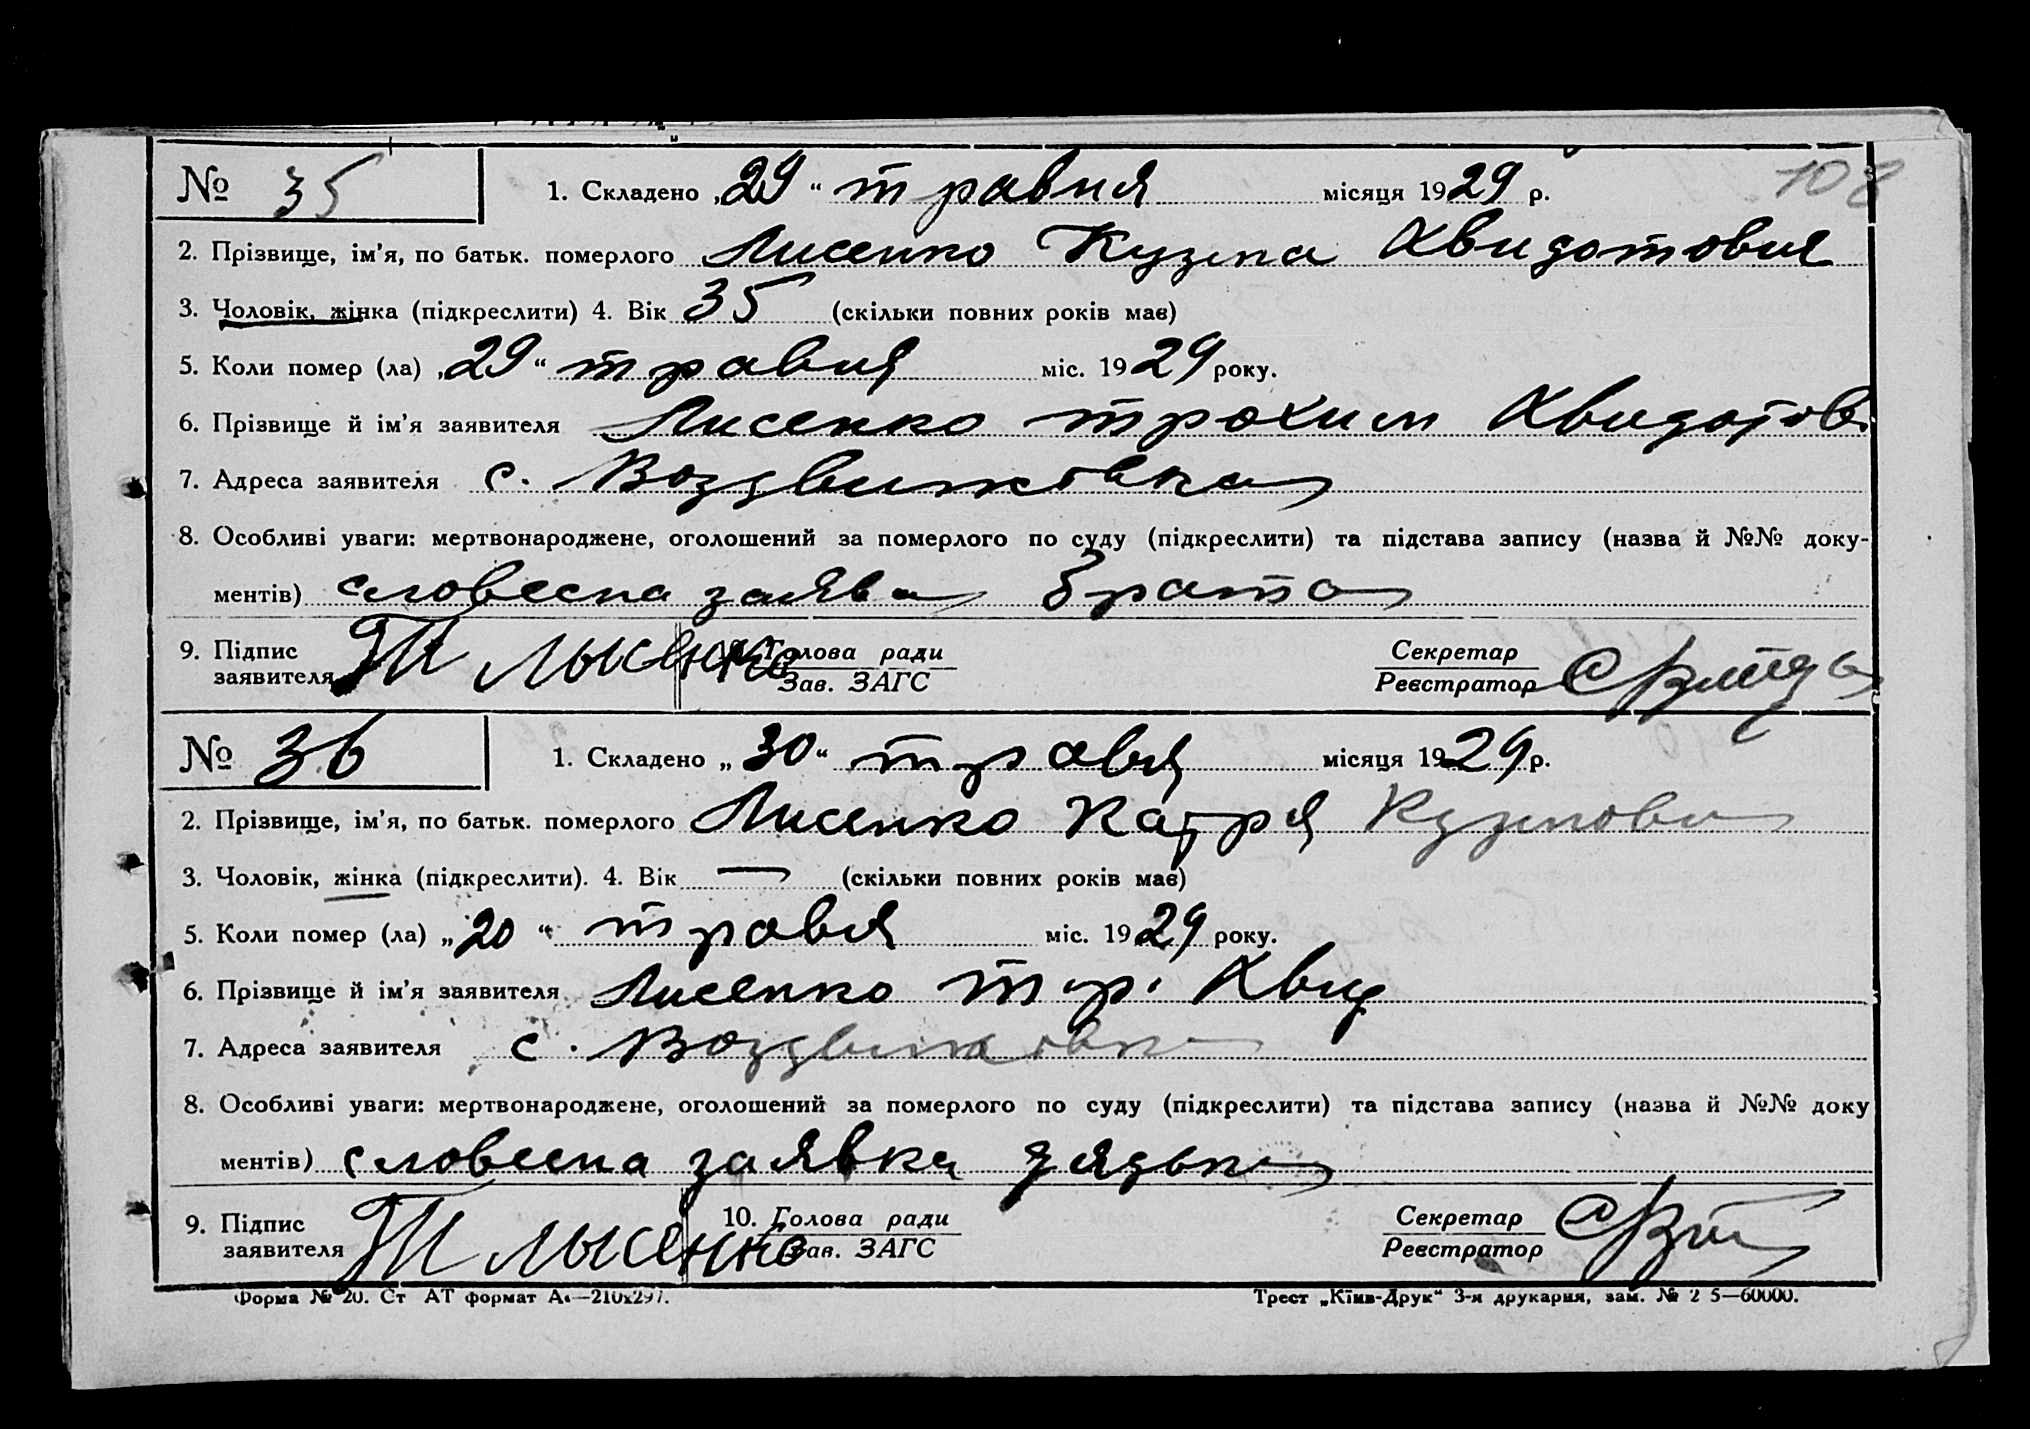 108
№ 35 1. Складено „29“ травня місяця 1929 р.
2. Прізвище, ім’я, по батьк. померлого Лисенко Кузма Хвидотовия
3. Чоловік, жінка (підкреслити) 4. Вік 35 (скільки повних років має)
5. Коли помер (ла) „29“ травня міс. 1929 року.
6. Прізвище й ім’я заявителя Лисенко Трохим Хвидотов.
7. Адреса заявителя с. Воздвижівка
8. Особливі уваги: мертвонароджене, оголошений за померлого по суду (підкреслити) та підстава запису (назва й №№ доку-
ментів) словесна заява брата
9. Підпис заявителя Т Лысенко 10. Голова ради Секретар
Зав. ЗАГС Реєстратор
№ 36 1. Складено „30“ травя місяця 1929 р.
2. Прізвище, ім’я, по батьк. померлого Лисенко Катря Кузмовна
3. Чоловік, жінка (підкреслити). 4. Вік — (скільки повних років має)
5. Коли помер (ла) „20“ травя міс. 1929 року.
6. Прізвище й ім’я заявителя Лисенко Тр. Хвид
7. Адреса заявителя с. Воздвижівка
8. Особливі уваги: мертвонароджене, оголошений за померлого по суду (підкреслити) та підстава запису (назва й №№ доку
ментів) словесна заявка дядька
9. Підпис заявителя Т Лысенко 10. Голова ради Секретар
Зав. ЗАГС Реєстратор
Форма № 20. Ст АТ формат А4—210х297. Трест „Київ-Друк“ 3-я друкарня, зам. № 2 5—60000.